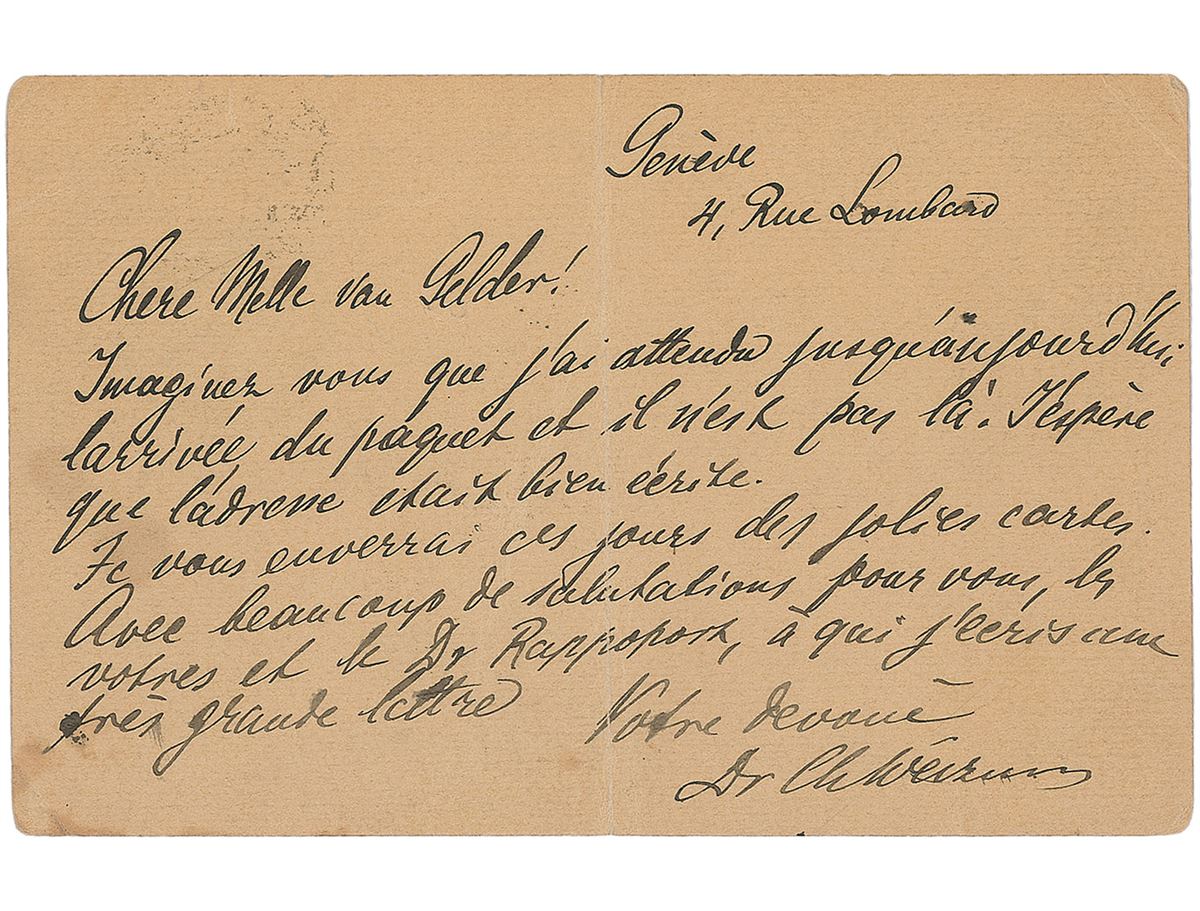 Genève
4, Rue Lombard
Chere Melle van Gelder!
Imaginez vous que j'ai attendu jusqu'aujourd'hui
l'arrivée du paquet et il n'est pas là. J'espère
que l'adresse etait bien écrite.
Je vous enverrai ces jours des jolies cartes.
Avec beaucoup de salutations pour vous, les
votres et le Dr Rappoport, à qui j'écris une
très grande lettre
Votre devoué
Dr Ch Weizmann